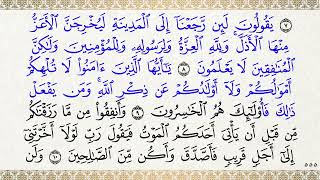 ٧ يَقُولُونَ لَئِن رَّجَعْنَا إِلَى الْمَدِينَةِ لَيُخْرِجَنَّ الْأَعَزُّ
مِنْهَا الْأَذَلَّ ۚ وَلِلَّهِ الْعِزَّةُ وَلِرَسُولِهِ وَلِلْمُؤْمِنِينَ وَلَٰكِنَّ
الْمُنَافِقِينَ لَا يَعْلَمُونَ ٨ يَا أَيُّهَا الَّذِينَ ءَامَنُوا لَا تُلْهِكُمْ
أَمْوَالُكُمْ وَلَا أَوْلَادُكُمْ عَن ذِكْرِ اللَّهِ ۚ وَمَن يَفْعَلْ
ذَٰلِكَ فَأُولَٰئِكَ هُمُ الْخَاسِرُونَ ٩ وَأَنفِقُوا مِن مَّا رَزَقْنَاكُم
مِّن قَبْلِ أَن يَأْتِيَ أَحَدَكُمُ الْمَوْتُ فَيَقُولَ رَبِّ لَوْلَا أَخَّرْتَنِي
إِلَىٰ أَجَلٍ قَرِيبٍ فَأَصَّدَّقَ وَأَكُن مِّنَ الصَّالِحِينَ ١٠ وَلَن
٥٥٥